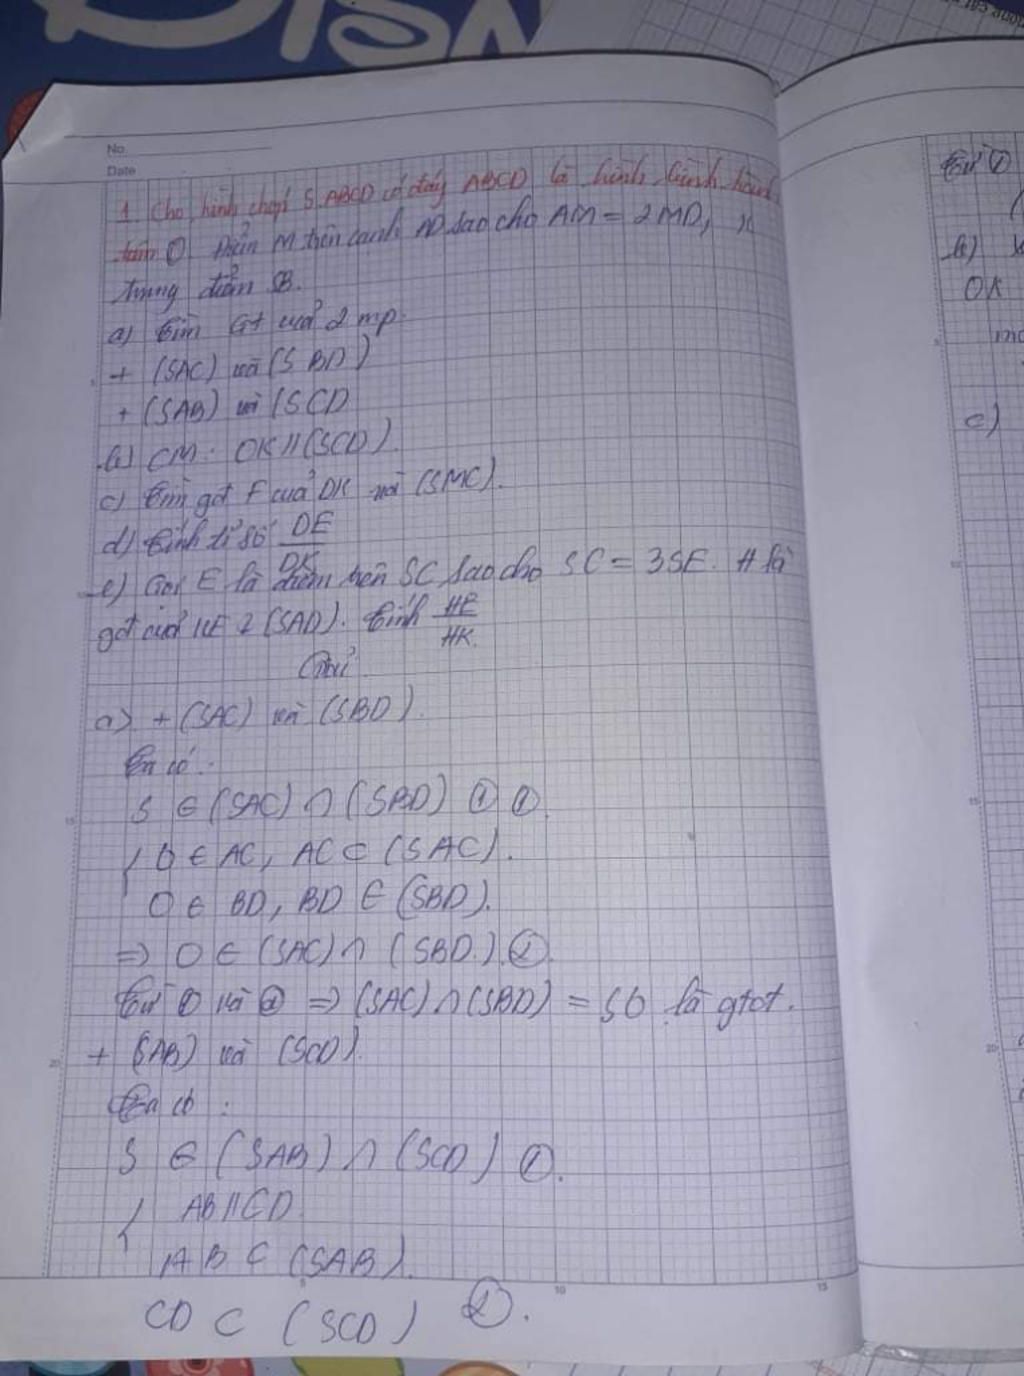 No.
Date
1 Cho hình chóp S.ABCD có đáy ABCD là hình bình hành
tâm O. Điểm M trên cạnh AD sao cho AM = 2MD, K
trung điểm SB.
a) Tìm Gt của 2 mp.
+ (SAC) và (SBD)
+ (SAB) và (SCD
b) CM: OK // (SCD).
c) Tìm gđ F của DK và (SMC).
d) Tính tỉ số DE/DK
e) Gọi E là điểm trên SC sao cho SC = 3SE. H là
gđ của KE & (SAD). Tính HE/HK.
Giải
a) + (SAC) và (SBD).
Ta có:
S ∈ (SAC) ∩ (SBD) ① ①.
{ O ∈ AC, AC ⊂ (SAC).
O ∈ BD, BD ∈ (SBD).
=> O ∈ (SAC) ∩ (SBD.) ②.
Từ ① và ② => (SAC) ∩ (SBD) = SO là gtct.
+ (SAB) và (SCD).
Ta có:
S ∈ (SAB) ∩ (SCD) ①.
{ AB // CD.
AB ⊂ (SAB).
CD ⊂ (SCD) ②.
Từ ①
b)
OK
c)